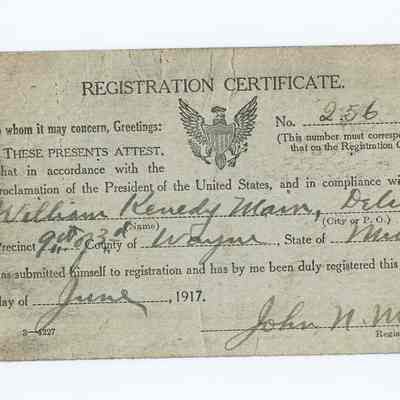 REGISTRATION CERTIFICATE.
o whom it may concern, Greetings:
No. 256
(This number must correspo
that on the Registration C
THESE PRESENTS ATTEST,
hat in accordance with the
roclamation of the President of the United States, and in compliance wi
William Kenedy Mann,
(Name)
(City or P. O.)
Precinct County of Wayne, State of
as submitted himself to registration and has by me been duly registered this
ay of June, 1917.
3—4227
John N. M
Regis